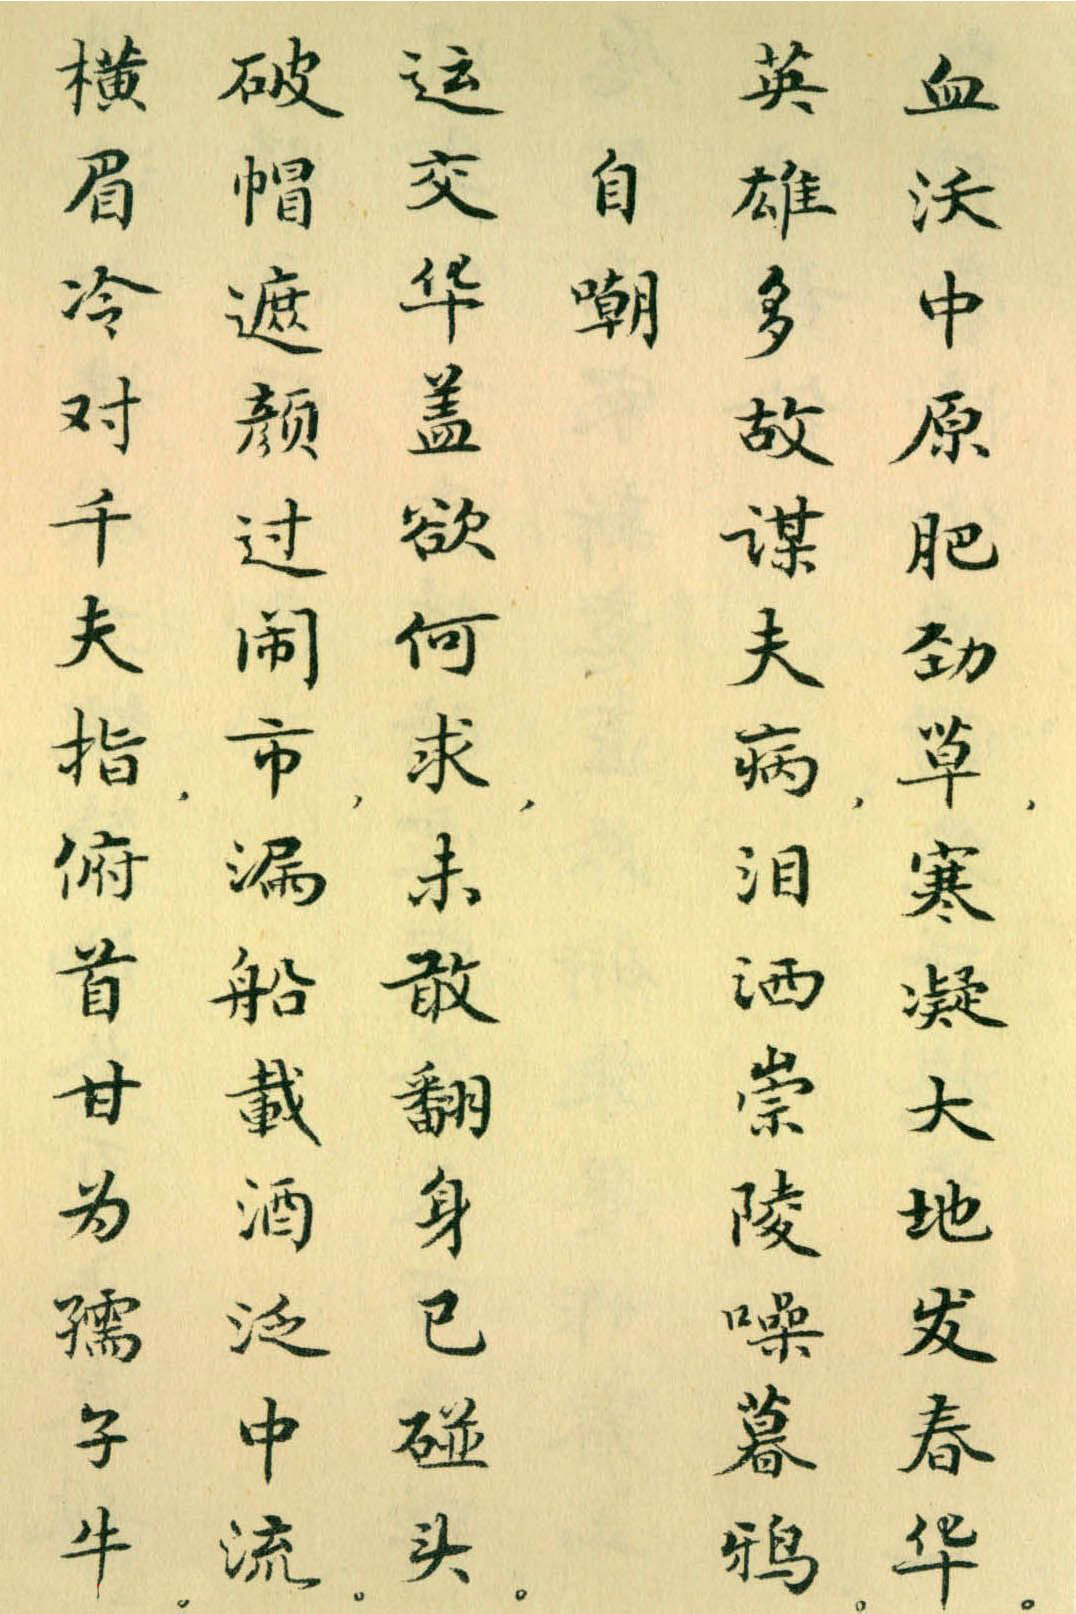 血沃中原肥劲草，寒凝大地发春华。
英雄多故谋夫病，泪洒崇陵噪暮鸦。
自嘲
运交华盖欲何求，未敢翻身已碰头。
破帽遮颜过闹市，漏船載酒泛中流。
横眉冷对千夫指，俯首甘为孺子牛。